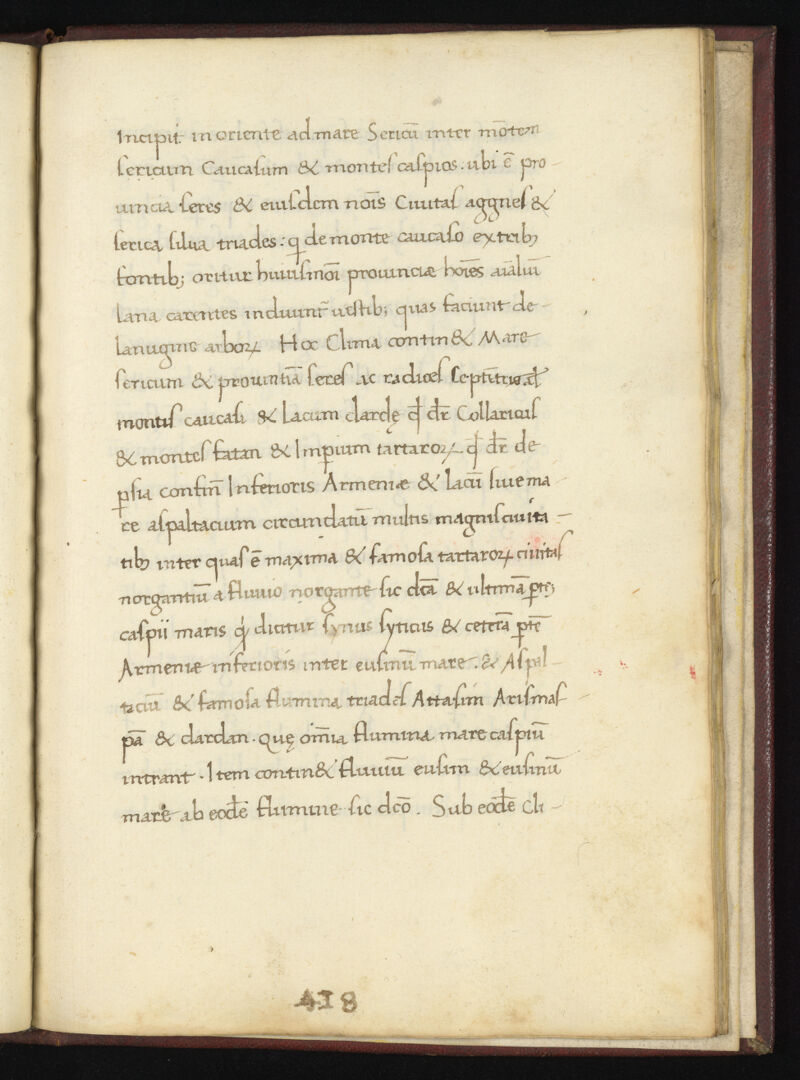 Incipit in oriente ad mare Sericū inter mōtem
sericum Caucasum & montes caspios. ubi ē pro-
uincia seres & eiusdem noīs Ciuitas aggnes &
serica silua triades: ꝙ de monte caucaso ex trib;
fontib; oritur huiusmōi prouinciæ hoīes aīaliū
lana carentes induunt̄ uestib; quas faciunt de-
lanugine arboꝝ Hoc Clima contin& Mare
sericum & prouintiā seres ac radices
montis caucasi & Lacum dardę ꝗ dr̄ Collaricus
& montes fatan & Imꝑium tartaroꝝ ꝗ dr̄ de
ꝑsia confinī Inferioris Armeniæ & lacū siue ma
re aspaltacium circundatū multis magnis ciuita-
tib; inter quas ē maxima & famosa tartaroꝝ ciuitas
norgantiū a fluuio norgante sic dc̄a & ultimā ꝑtē
caspii maris ꝙ dicitur synus syticus & ceterā ꝑtē
Armeniæ inferioris inter eusinū mare. & Aspal-
taciū & famosa flumina triades Attasim Arismas-
pā & dardan. Quę om̄ia flumina mare caspiū
intrant. Item contin& fluuiū eusim & eusinū
mare ab eodē flumine sic dc̄o. Sub eodē Cli-
418